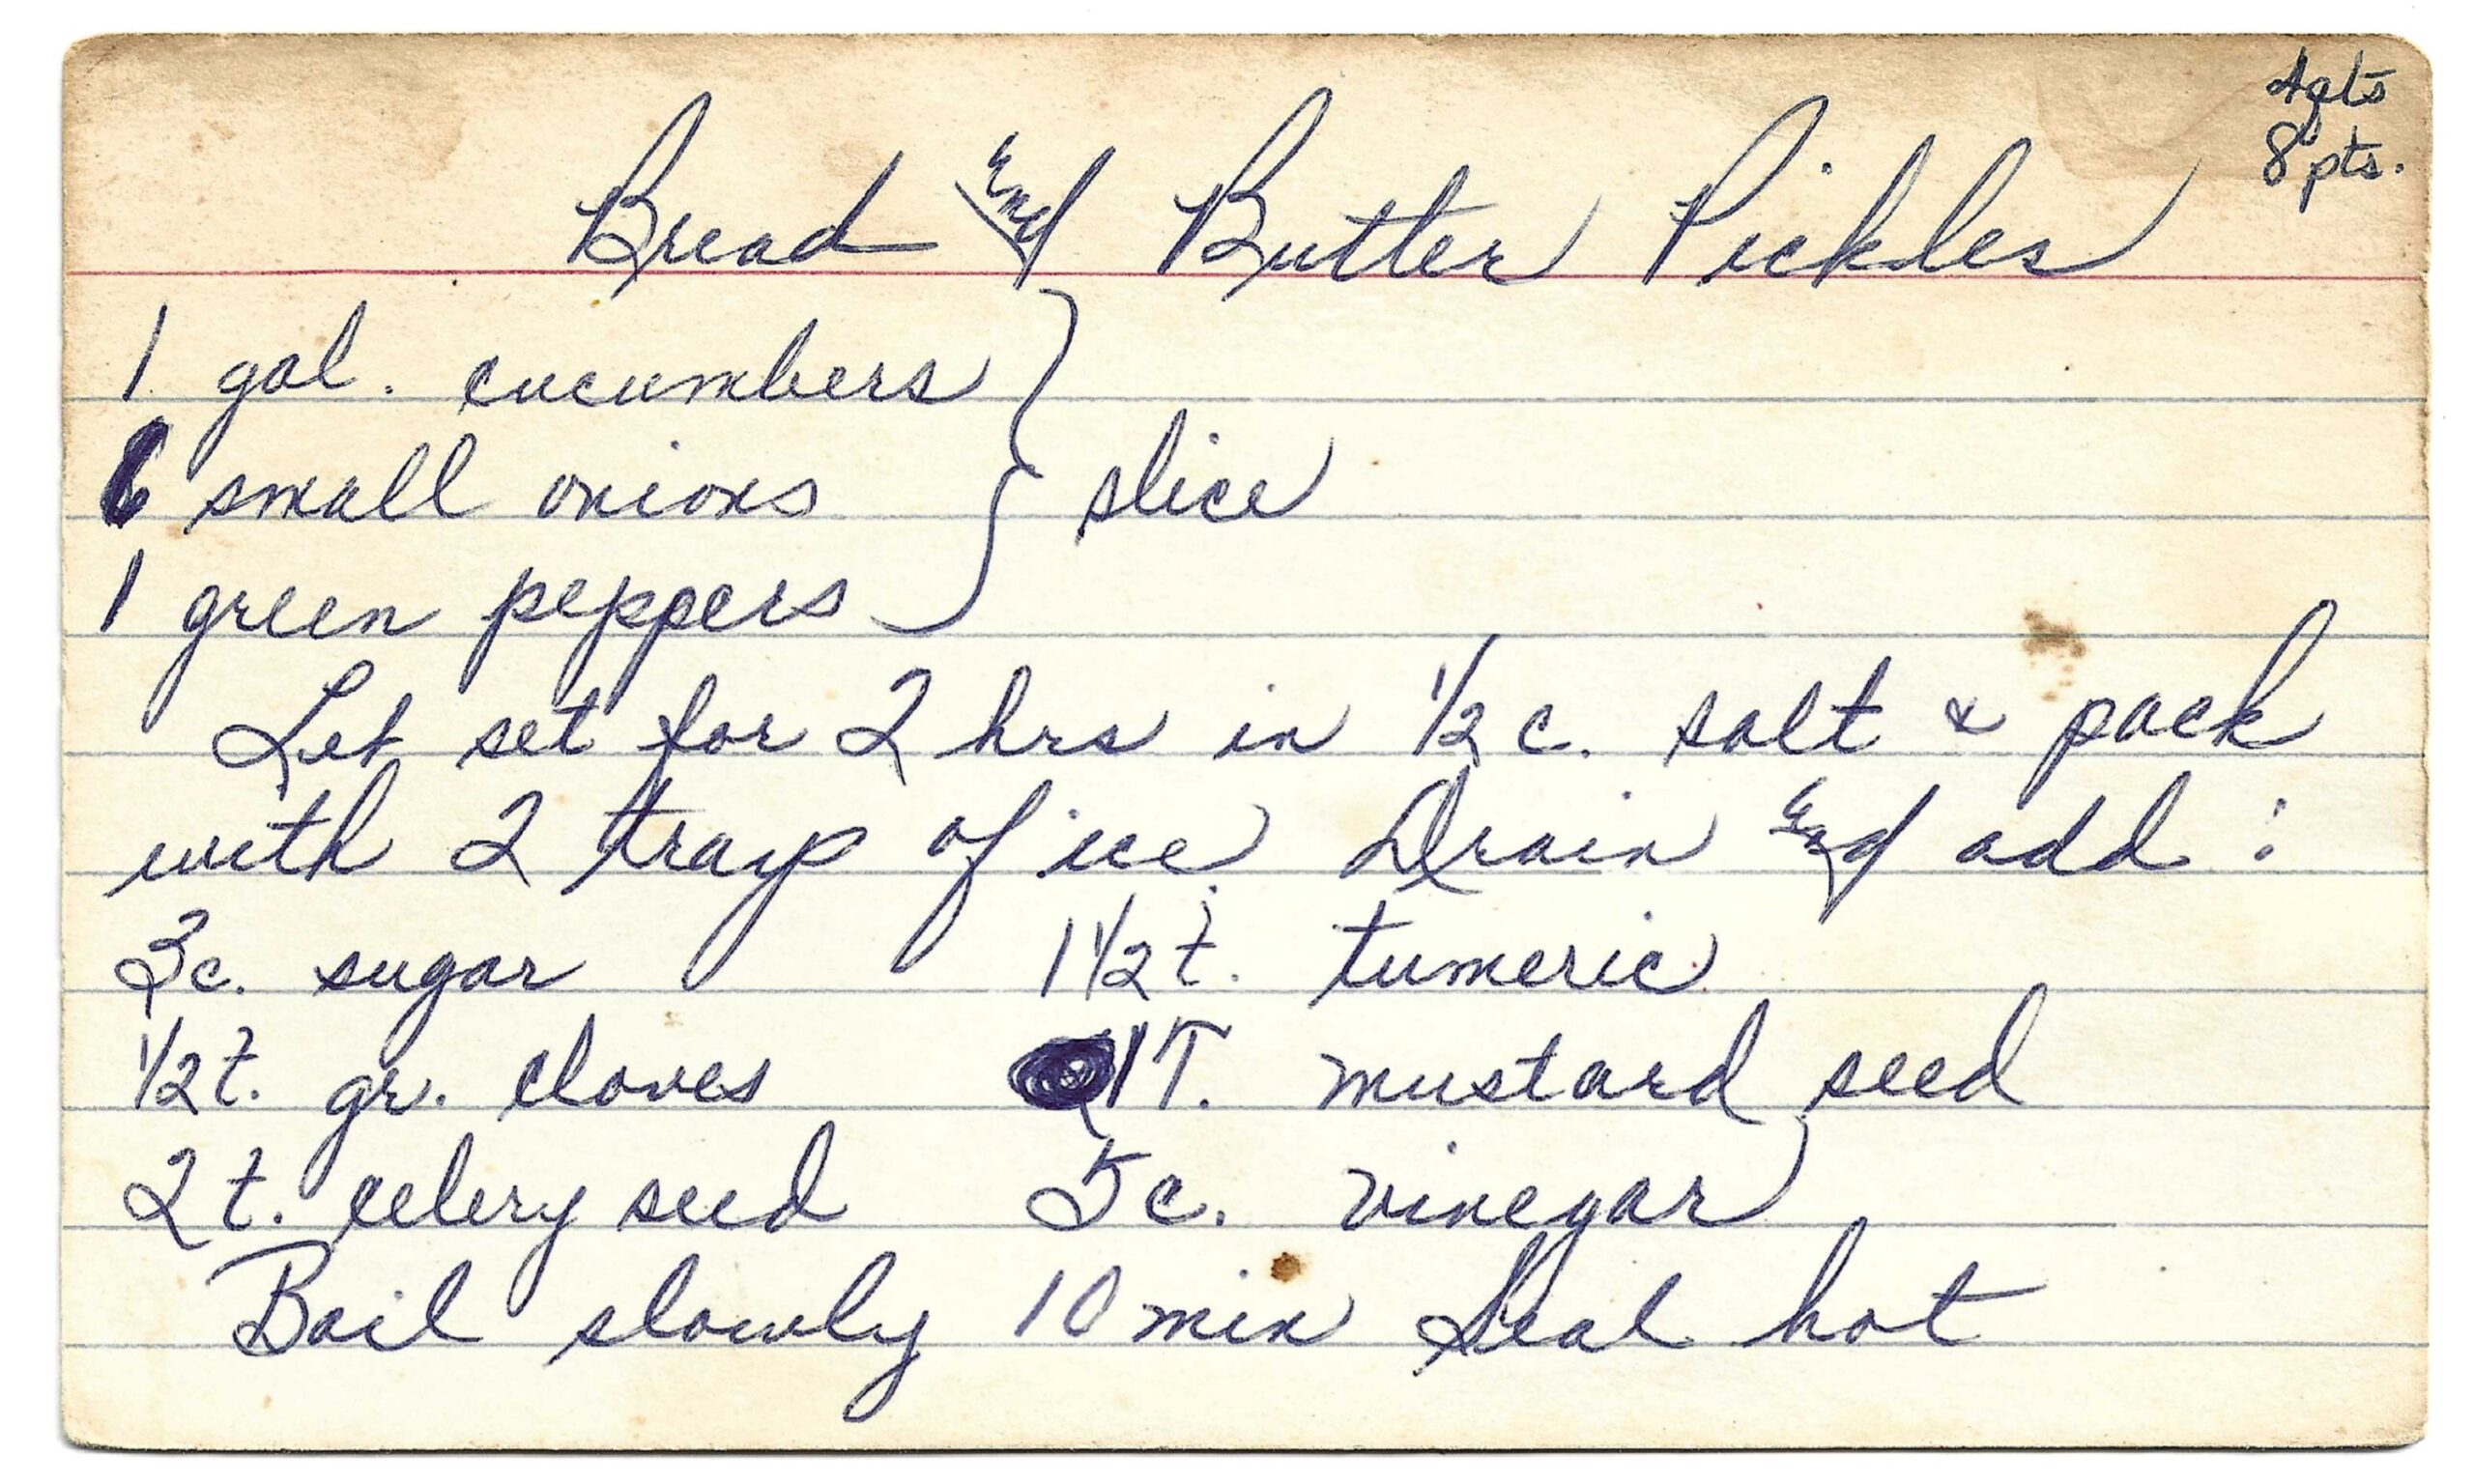 4 qts
8 pts.
Bread and Butter Pickles
1 gal. cucumbers
6 small onions } slice
1 green peppers
Let set for 2 hrs in 1/2 c. salt & pack
with 2 trays of ice Drain and add :
3c. sugar 1 1/2 t. tumeric
1/2 t. gr. cloves 1 T. mustard seed
2 t. celery seed 5 c. vinegar
Boil slowly 10 min Seal hot